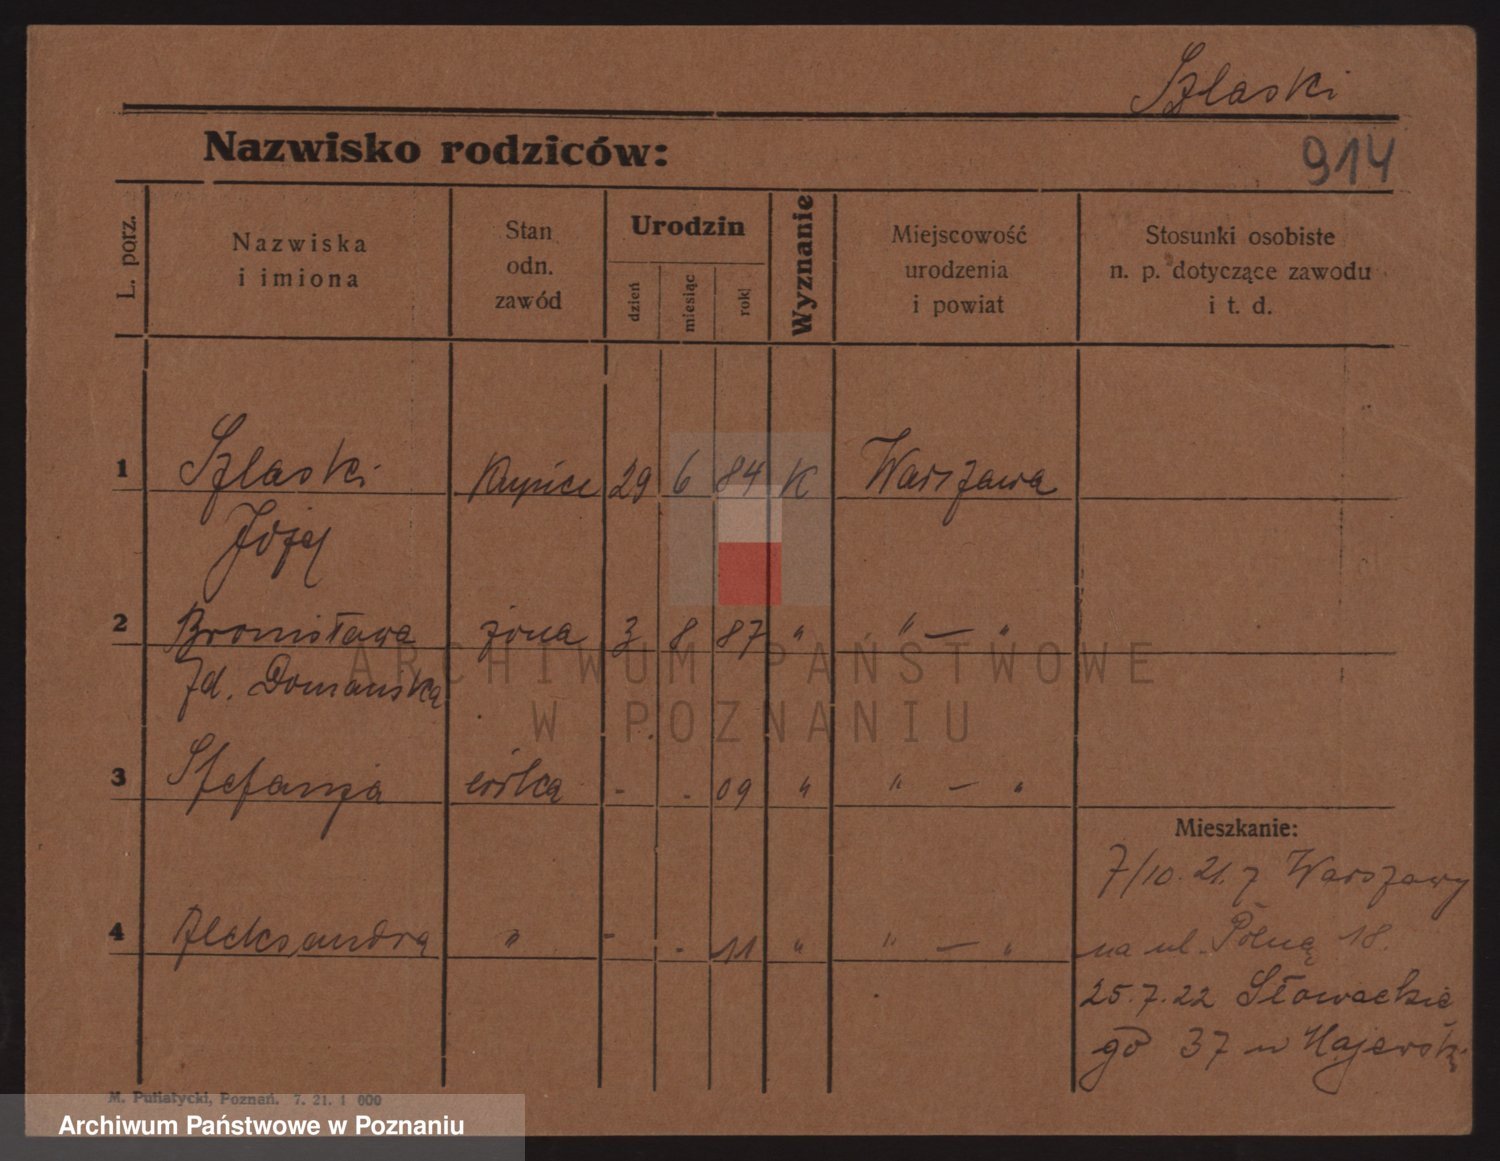 Szlaski
Nazwisko rodziców:
914
L. porz.
Nazwiska
i imiona
Stan
odn.
zawód
Urodzin
dzień
miesiąc
rok
Wyznanie
Miejscowość
urodzenia
i powiat
Stosunki osobiste
n. p. dotyczące zawodu
i t. d.
1 Szlaski Kupiec 29 6 84 K Warszawa
Józef
2 Bronisława żona 3 8 87 " " — "
zd. Domańska
3 Stefanja córka - - 09 " " — "
Mieszkanie:
7/10. 21. z Warszawy
4 Aleksandra " - - 11 " " — "
na ul. Półną 18.
25.7.22 Słowackie
go 37 u Majewski
M. Putiatycki, Poznań. 7. 21. 1 000
ARCHIWUM PAŃSTWOWE
W POZNANIU
Archiwum Państwowe w Poznaniu